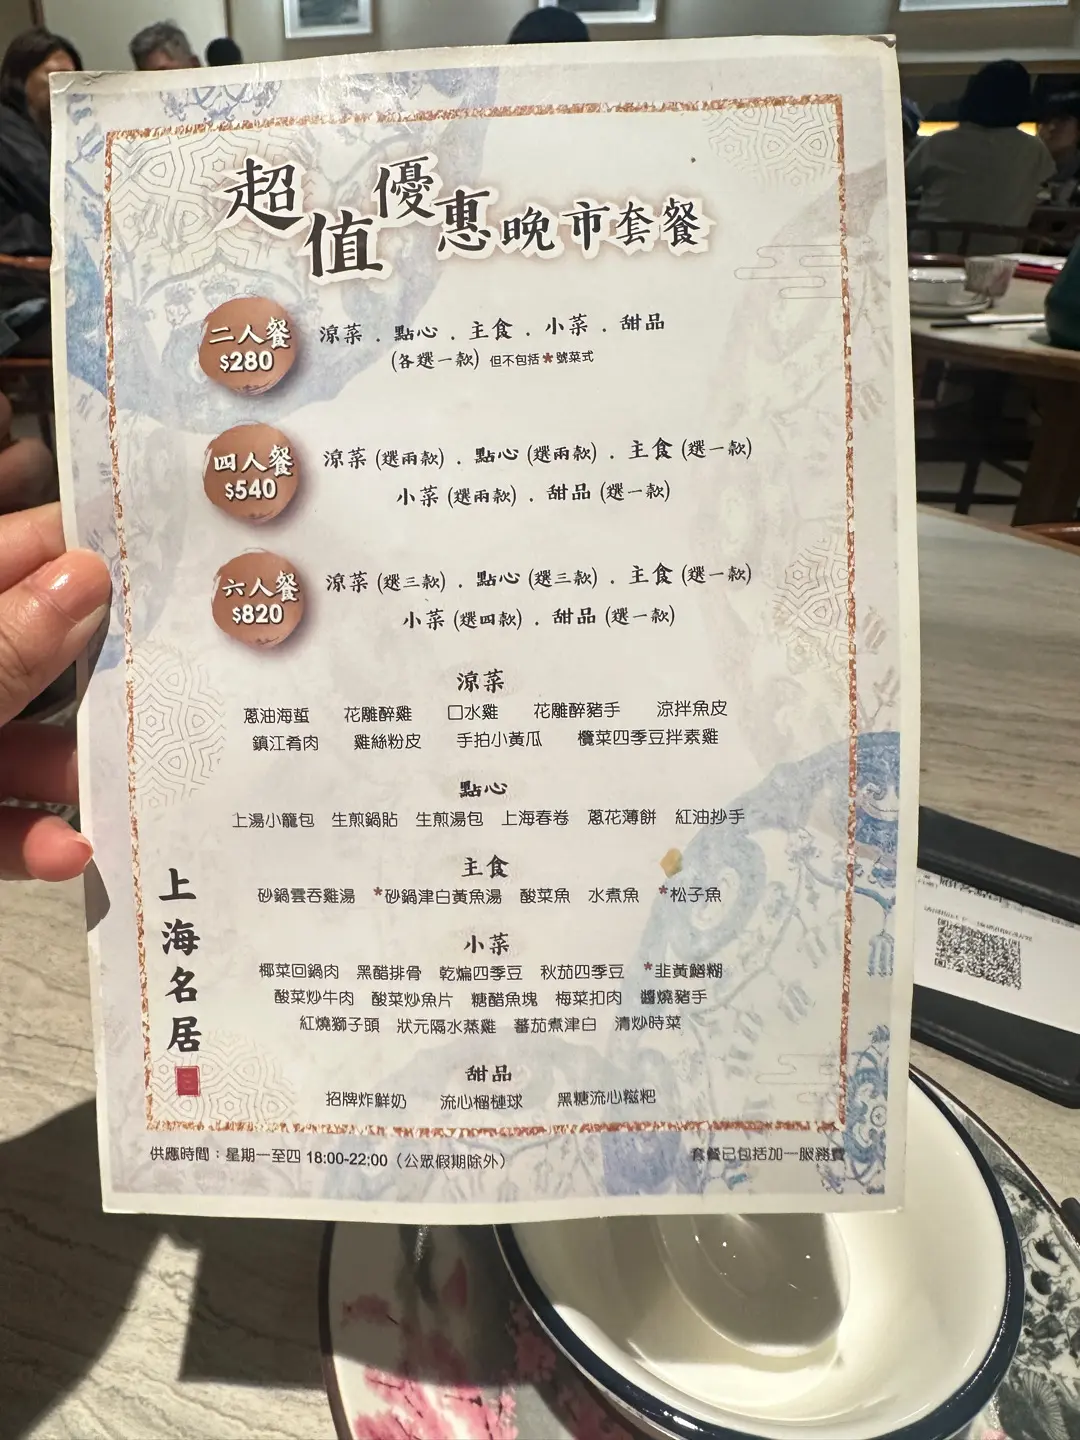 超值優惠晚市套餐
二人餐
$280
涼菜 . 點心 . 主食 . 小菜 . 甜品
(各選一款) 但不包括*號菜式
四人餐
$540
涼菜 (選兩款) . 點心 (選兩款) . 主食 (選一款)
小菜 (選兩款) . 甜品 (選一款)
六人餐
$820
涼菜 (選三款) . 點心 (選三款) . 主食 (選一款)
小菜 (選四款) . 甜品 (選一款)
涼菜
蔥油海蜇 花雕醉雞 口水雞 花雕醉豬手 涼拌魚皮
鎮江肴肉 雞絲粉皮 手拍小黃瓜 欖菜四季豆拌素雞
點心
上湯小籠包 生煎鍋貼 生煎湯包 上海春卷 蔥花薄餅 紅油抄手
主食
砂鍋雲吞雞湯 *砂鍋津白黃魚湯 酸菜魚 水煮魚 *松子魚
小菜
椰菜回鍋肉 黑醋排骨 乾煸四季豆 秋茄四季豆 *韭黃鱔糊
酸菜炒牛肉 酸菜炒魚片 糖醋魚塊 梅菜扣肉 醬燒豬手
紅燒獅子頭 狀元隔水蒸雞 蕃茄煮津白 清炒時菜
甜品
招牌炸鮮奶 流心榴槤球 黑糖流心糍粑
上海名居
供應時間：星期一至四 18:00-22:00（公眾假期除外）
套餐已包括加一服務費